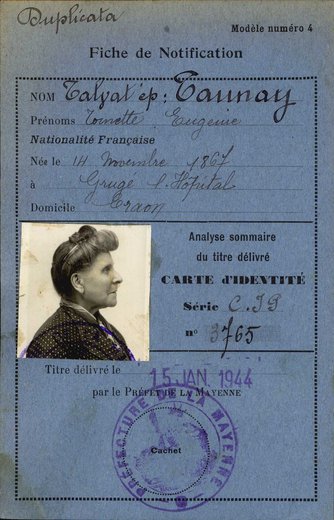 Duplicata
Modèle numéro 4
Fiche de Notification
NOM Talvat ép: Taunay
Prénoms Toinette Eugénie
Nationalité Française
Née le 14 Novembre 1867
à Grugé l'Hôpital
Domicile Craon
Analyse sommaire
du titre délivré
CARTE D'IDENTITÉ
Série C.IS
n° 3765
Titre délivré le 15 JAN. 1944
par le PRÉFET DE LA MAYENNE
PRÉFECTURE DE LA MAYENNE
Cachet